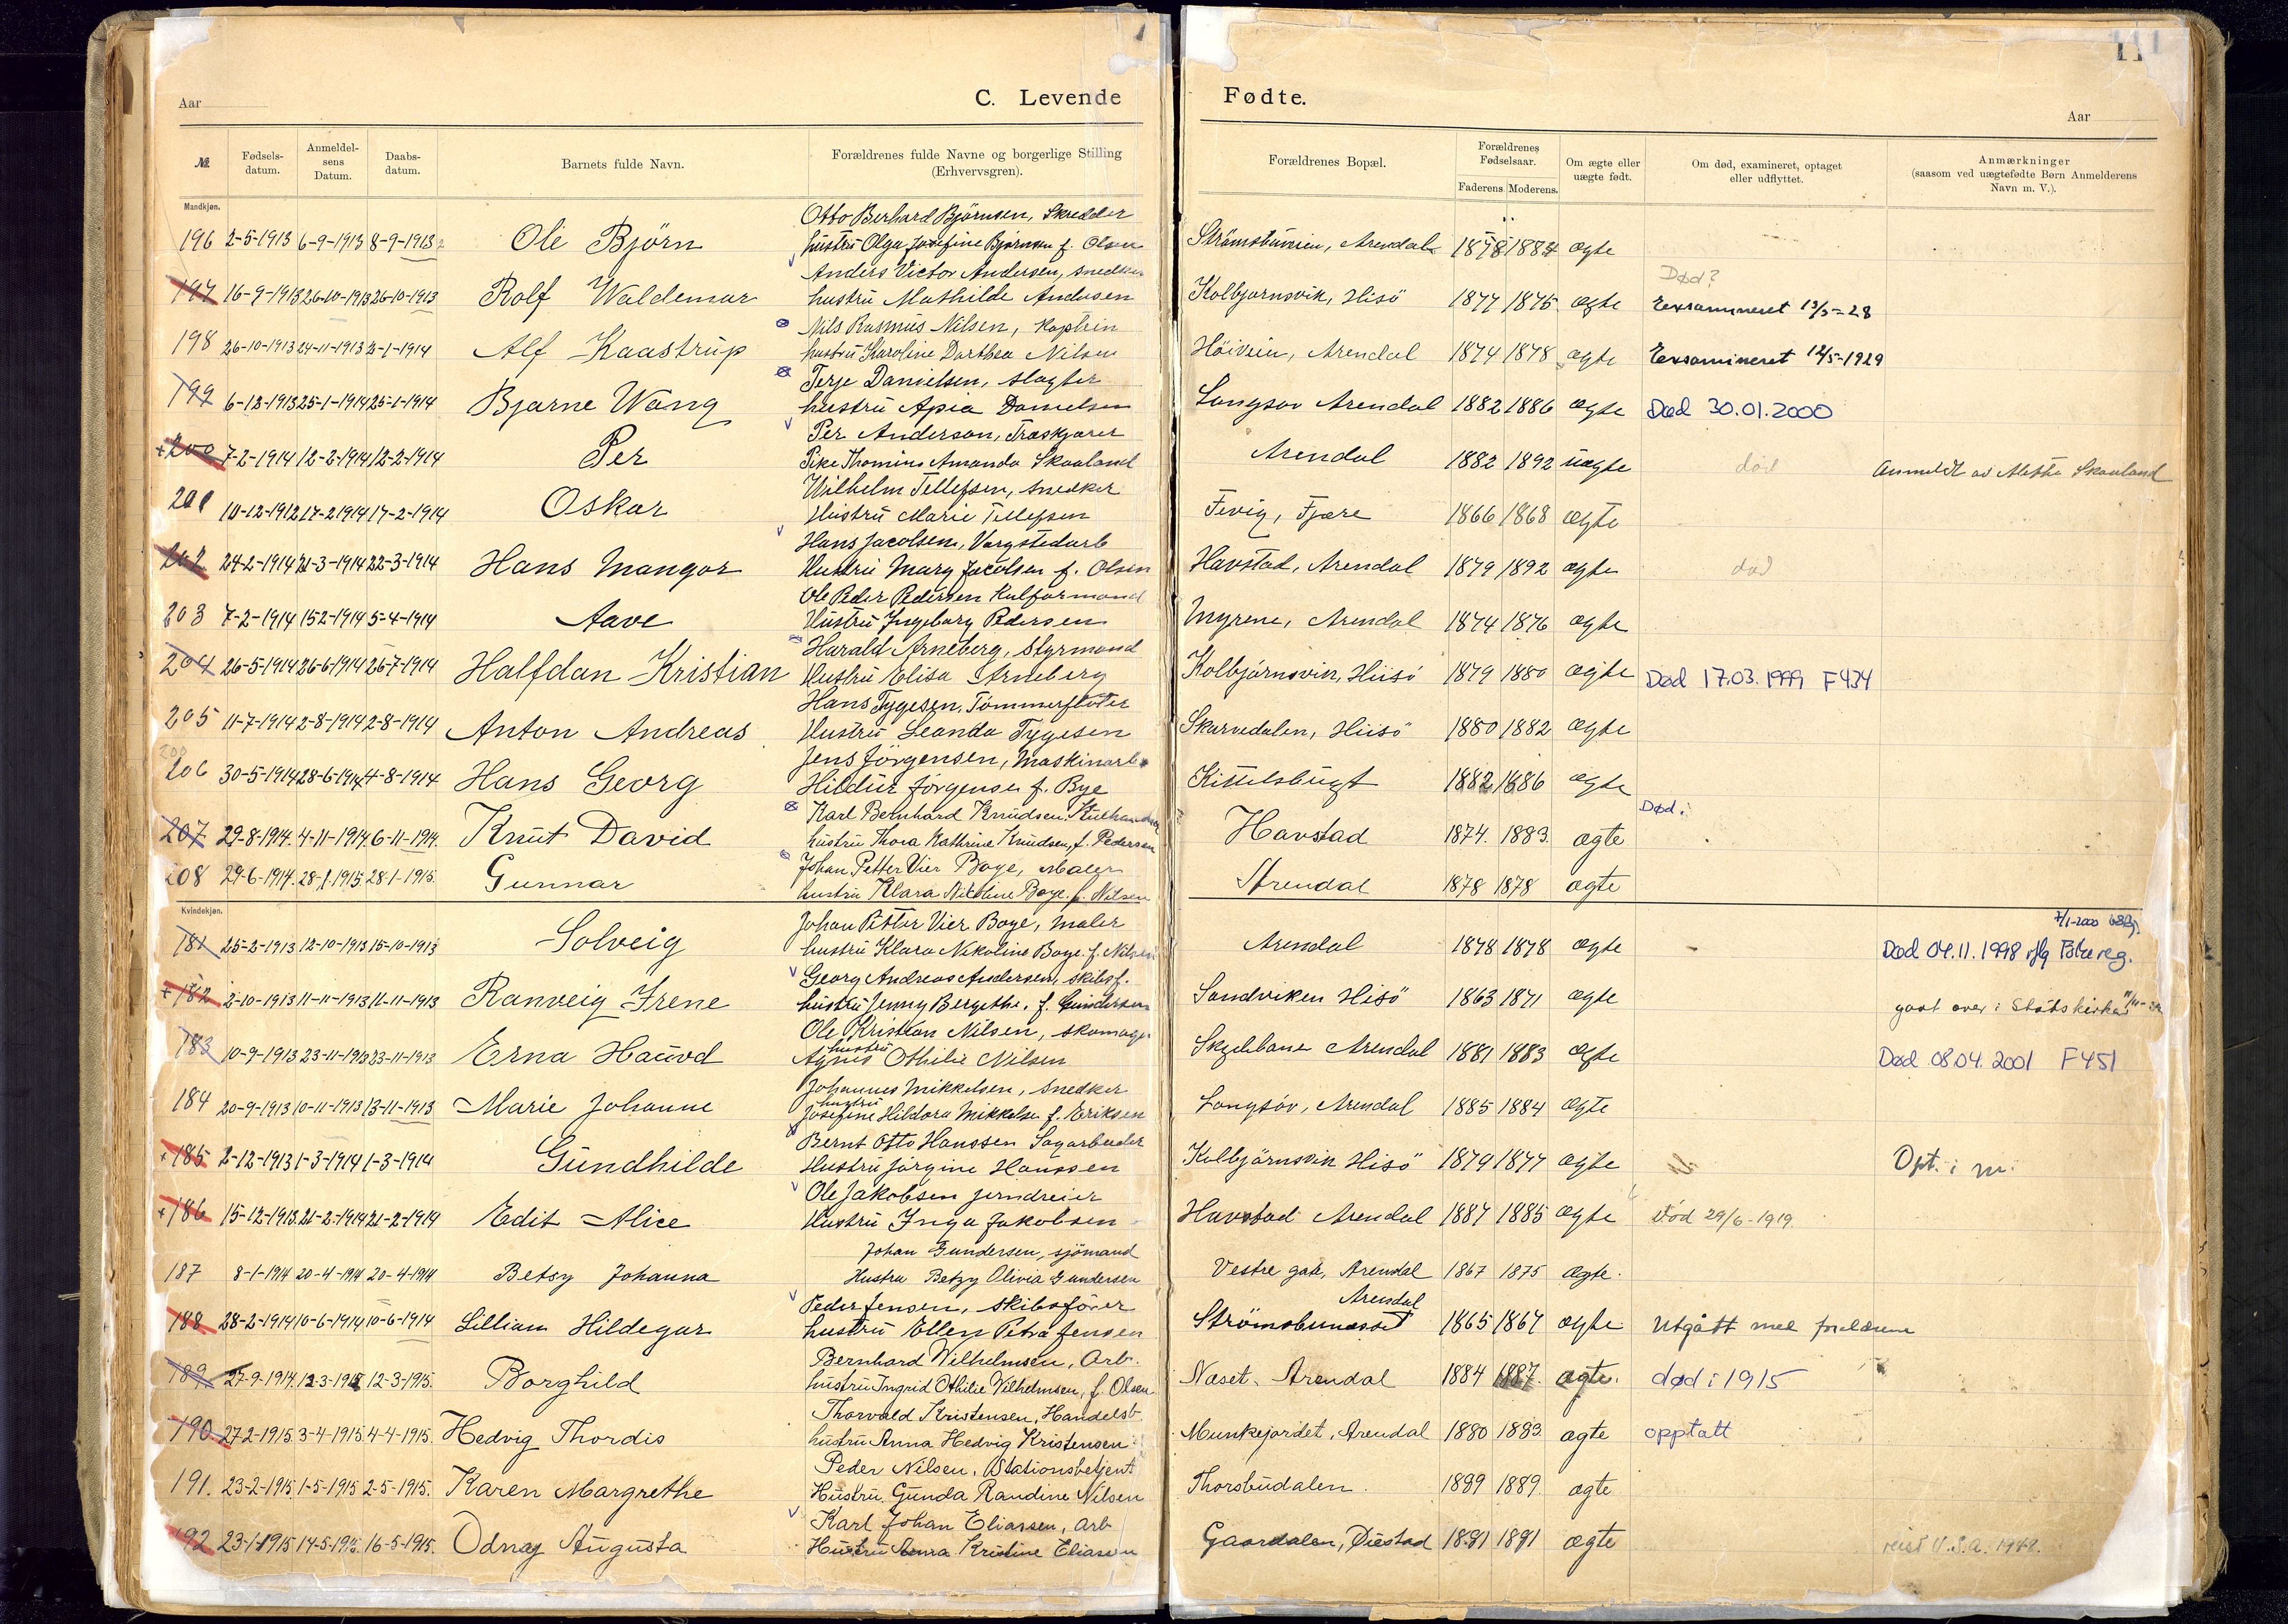 111
Aar
C. Levende Fødte.
Aar
№ Fødsels-datum. Anmeldel-sens Datum. Daabs-datum. Barnets fulde Navn. Forældrenes fulde Navne og borgerlige Stilling (Erhvervsgren). Forældrenes Bopæl. Forældrenes Fødselsaar. Faderens. Moderens. Om ægte eller uægte født. Om død, examineret, optaget eller udflyttet. Anmærkninger (saasom ved uægtefødte Børn Anmelderens Navn m. V.).
Mandkjøn.
Otto Berhard Björnsen, Skredder
196 2-5-1913 6-9-1913 8-9-1913 Ole Björn hustru Olga Josefine Bjørnsen f. Olsen Arendal 1878 1884 ægte
Anders Victor Andersen, snedker Død?
197 16-9-1913 26-10-1913 26-10-1913 Rolf Waldemar hustru Mathilde Andersen Kolbjørnsvik, Hisö 1877 1875 ægte Exsamineret 13/5-28
Nils Rasmus Nilsen, Kaptein
198 26-10-1913 24-11-1913 2-1-1914 Alf Kaastrup hustru Karoline Dorthea Nilsen Höiveien, Arendal 1874 1878 ægte Exsamineret 12/5-1929
Terje Danielsen, slagter
199 6-12-1913 25-1-1914 25-1-1914 Bjarne Wang hustru Apia Danielsen Langsæv Arendal 1882 1886 ægte Død 30.01.2000
Per Anderson, Træskjærer
+200 7-2-1914 12-2-1914 12-2-1914 Per Pike Thomine Amanda Skaaland Arendal 1882 1892 uægte død Anmeldt av Skaaland
Wilhelm Tellefsen, snedker
201 10-12-1912 17-2-1914 17-2-1914 Oskar Hustru Marie Tellefsen Fevig, Fjære 1866 1868 ægte
Hans Jacobsen, Vergstedarb
202 24-2-1914 21-3-1914 22-3-1914 Hans Mangor Hustru Mary Jacobsen f. Olsen Havstad, Arendal 1879 1892 ægte død
Ole Peder Pedersen Kulformand
203 7-2-1914 15-2-1914 5-4-1914 Aave Hustru Ingeborg Pedersen Myrene, Arendal 1874 1876 ægte
Harald Arneberg, Styrmand
204 26-5-1914 26-6-1914 26-7-1914 Halfdan Kristian Hustru Elisa Arneberg Kolbjørnsvik, Hisö 1879 1880 ægte Død 17.03.1999 F434
Hans Tygesen, Tömmerfløter
205 11-7-1914 2-8-1914 2-8-1914 Anton Andreas Hustru Leanda Tygesen Skarvedalen, Hisö 1880 1882 ægte
Jens Jörgensen, Maskinarb
206 30-5-1914 28-6-1914 4-8-1914 Hans Georg Hildur Jörgensen f. Bye Kittelsbugt 1882 1886 ægte
Karl Bernhard Knudsen Død.
207 29-8-1914. 4-11-1914. 6-11-1914. Knut David hustru Thora Kathrine Knudsen, f. Pedersen Havstad 1874. 1883. ægte
Johan Petter Vier Boye, Maler
208 29-6-1914. 28-1-1915. 28-1-1915. Gunnar hustru Klara Nikoline Boye f. Nilsen Arendal 1878 1878 ægte
Kvindekjøn.
Johan Petter Vier Boye, maler
181 25-2-1913 12-10-1913 15-10-1913 Solveig hustru Klara Nikoline Boye f. Nilsen Arendal 1878 1878 ægte Død 04.11.1998
Georg Andreas Andersen, skibsf.
+182 2-10-1913 11-11-1913 11-11-1913 Ranveig Irene hustru Jenny Bergethe, f. Gundersen Sandviken Hisö 1863 1871 ægte gaat over i Statskirken
Ole Kristian Nilsen, skomager
183 10-9-1913 23-11-1913 23-11-1913 Erna Hauvd hustru Agnes Othilie Nilsen Skydebane Arendal 1881 1883 ægte Død 08.04.2001 F451
Johannes Mikkelsen, Snedker
184 20-9-1913 10-11-1913 13-11-1913 Marie Johanne hustru Josefine Hildora Mikkelsen f. Eriksen Langsöv, Arendal 1885 1884 ægte
Bernt Otto Hanssen Sagarbeider
+185 2-12-1913 1-3-1914 1-3-1914 Gundhilde Hustru Jörgine Hanssen Kolbjörnsvik Hisö 1879 1877 ægte Opt. i m.
Ole Jakobsen jerndreier
+186 15-12-1913 21-2-1914 21-2-1914 Edit Alice Hustru Inga Jakobsen Havstad Arendal 1887 1885 ægte død 29/6-1919.
Johan Gundersen, sjömand
187 8-1-1914 20-4-1914 20-4-1914 Betsy Johanna Hustru Betzy Olivia Gundersen Vestre gate, Arendal 1867 1875 ægte.
Peder Jensen, skibsförer Arendal
188 28-2-1914 10-6-1914 10-6-1914 Lillian Hildegar hustru Ellen Petra Jensen Strömsbunesset 1865 1867 ægte Utgått med foreldrene
Bernhard Wilhelmsen, Arb.
189 27-9-1914. 12-3-1915 12-3-1915. Borghild hustru Ingrid Othilie Vilhelmsen, f. Olsen Næset, Arendal 1884 1887. ægte. død i 1915
Thorvald Kristensen, Handelsb.
190. 27-2-1915. 3-4-1915. 4-4-1915. Hedvig Thordis hustru Anna Hedvig Kristensen Munkejordet, Arendal 1880 1883. ægte opptatt
Peder Nilsen, Stationsbetjent
191. 23-2-1915 1-5-1915 2-5-1915. Karen Margrethe Hustru Gunda Randine Nilsen Thorsbudalen. 1889 1889. ægte
Karl Johan Eliassen, Arb
192 23-1-1915 14-5-1915. 16-5-1915. Odnay Augusta Hustru Anna Kristine Eliassen Gaardalen, Øiestad 1891 1891 ægte reist U.S.A. 1948.